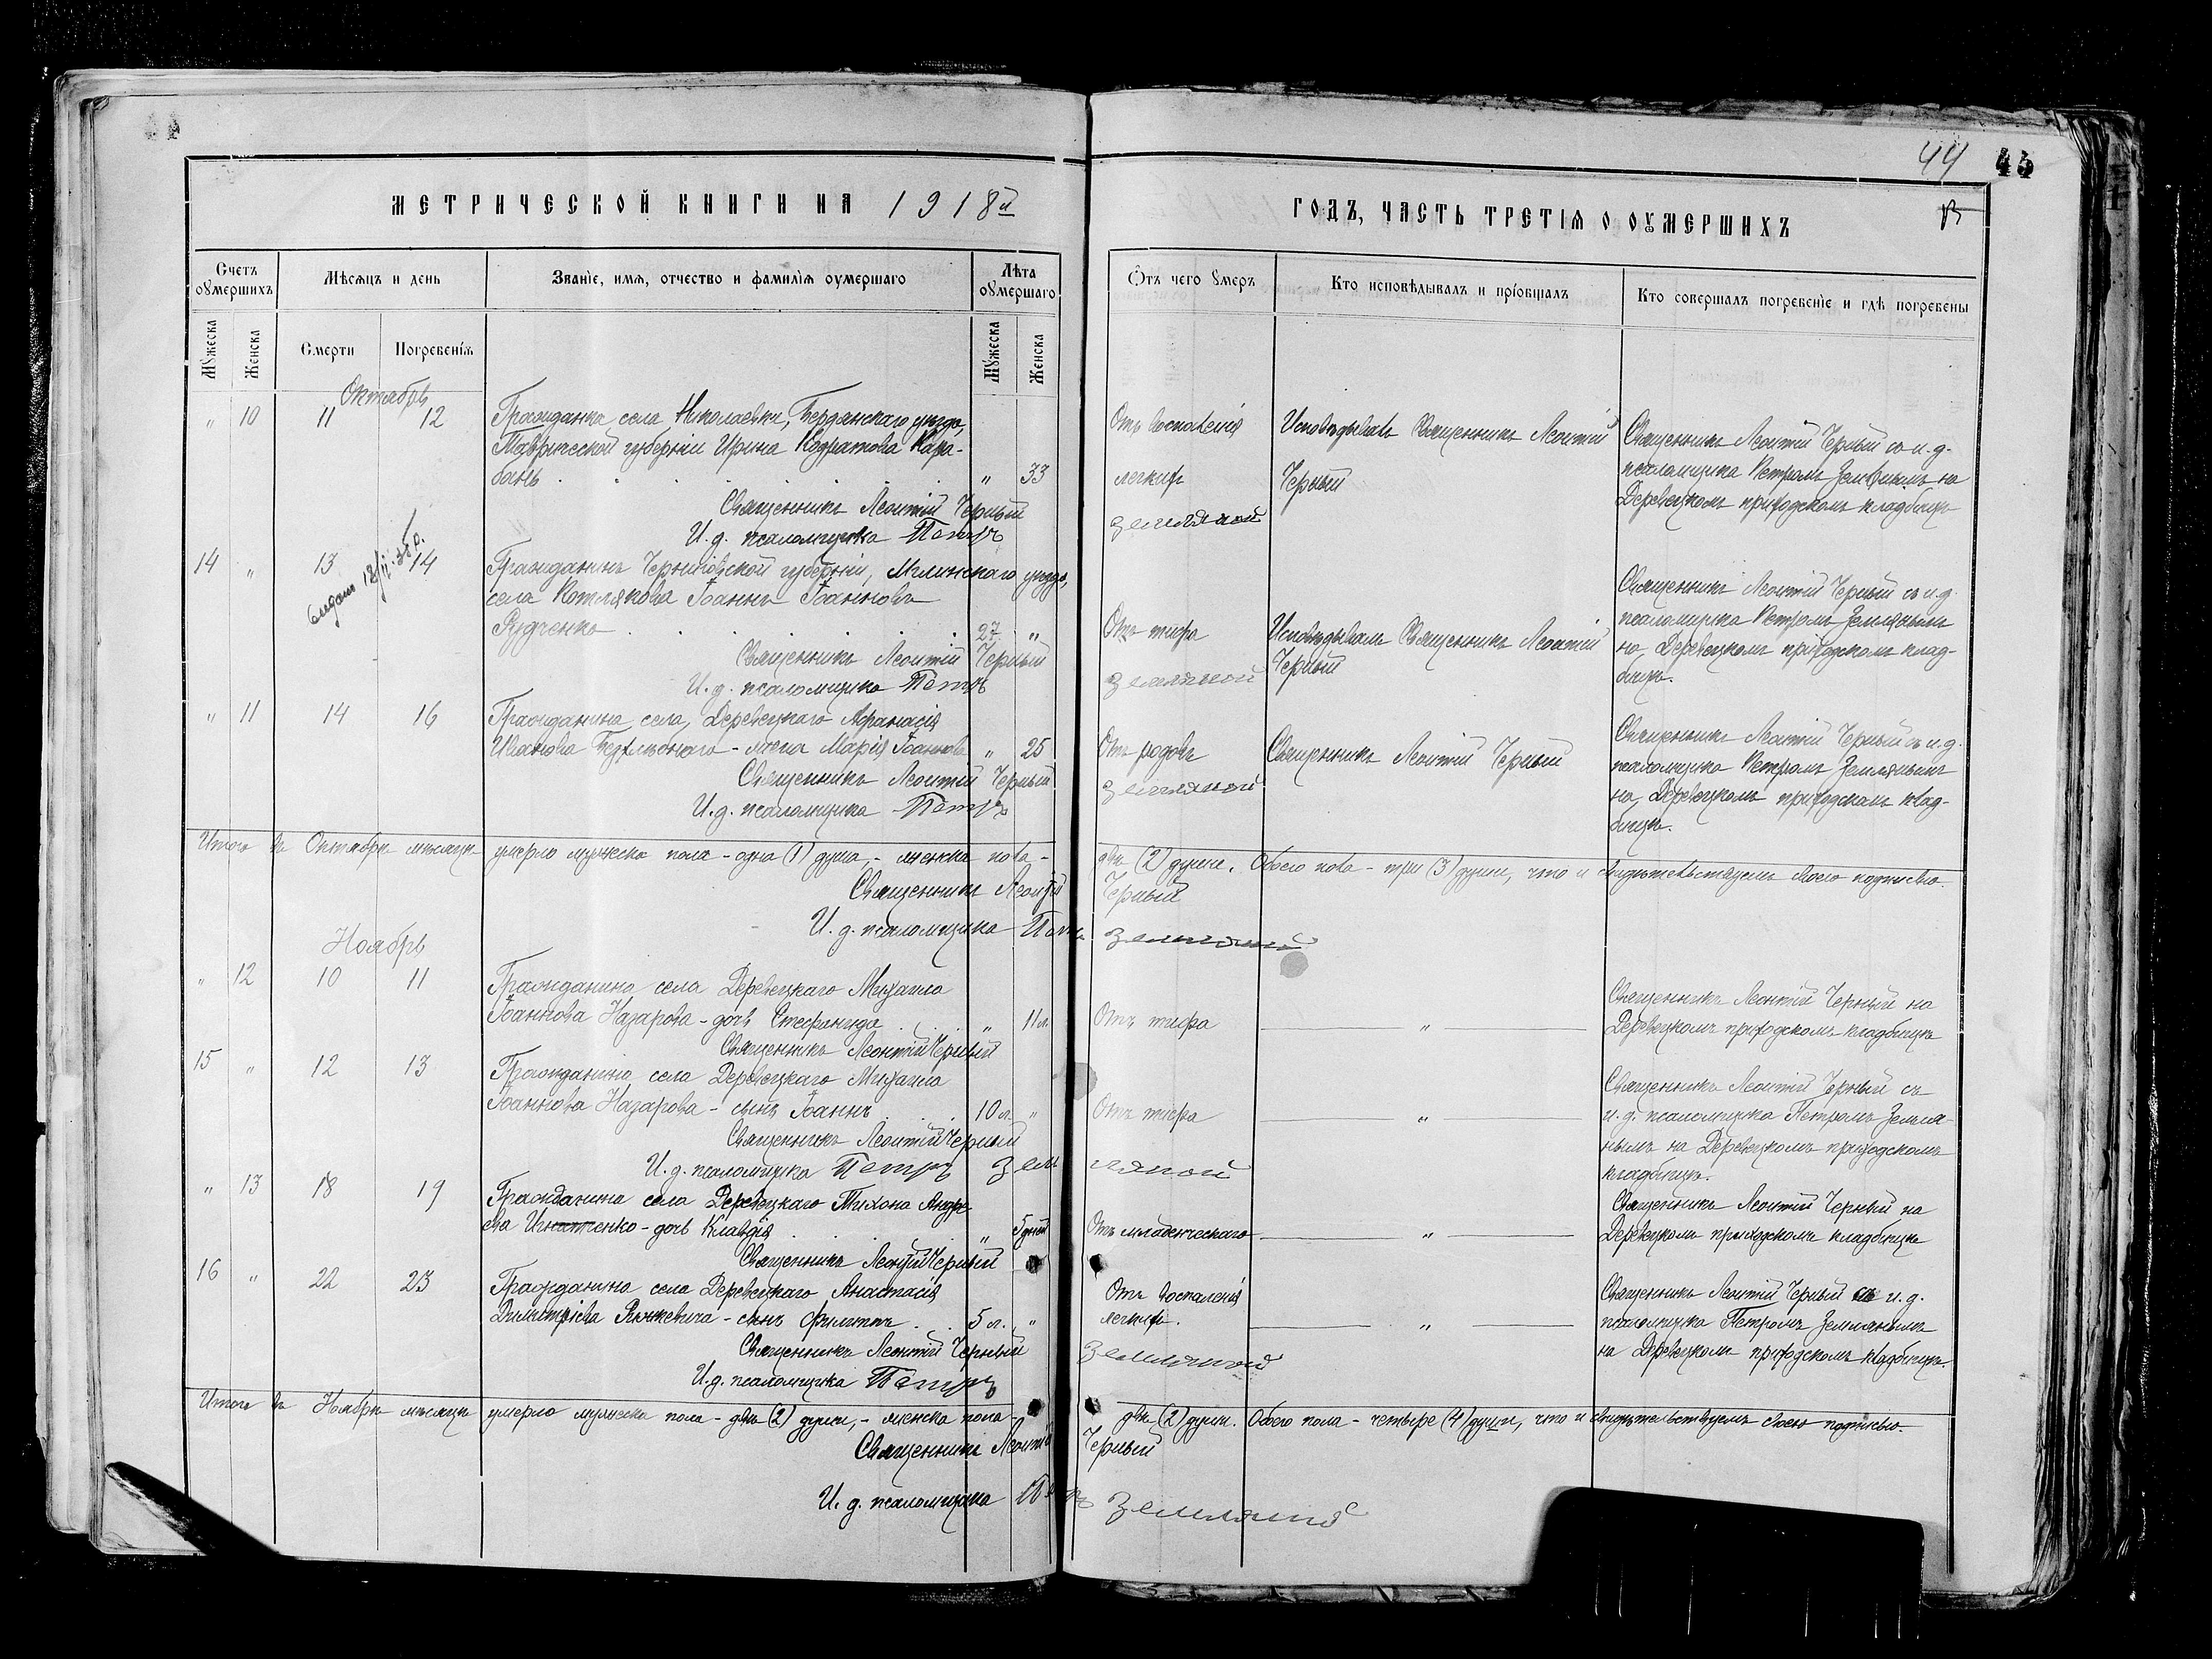 44 45
МЕТРИЧЕСКОЙ КНИГИ НА 1918й
ГОДЪ, ЧАСТЬ ТРЕТІЯ О ОУМЕРШИХЪ
Счетъ оумершихъ
Мѣсяцъ и день
Званіе, имя, отчество и фамилія оумершаго
Лѣта оумершаго
Отъ чего умеръ
Кто исповѣдывалъ и пріобщалъ
Кто совершалъ погребеніе и гдѣ погребены
Мужеска
Женска
Смерти
Погребенія
Мужеска
Женска
Октябрь
" 10 11 12 Гражданка села Николаевки, Бердянскаго уѣзда,
Таврической губерніи Ирина Кодратова Кара-
бань . . . . . . " 33
Священникъ Леонтій Черный
И.д. псаломщика Петръ
Отъ воспаленія
легкихъ
Земляной
Исповѣдывалъ Священникъ Леонтій
Черный
Священникъ Леонтій Черный съ и.д.
псаломщика Петромъ Землянымъ на
Деревецкомъ приходскомъ кладбищѣ
14 " 13 14 Гражданинъ Черниговской губерніи, Мглинскаго уѣзда,
села Котлякова Іоаннъ Іоанновъ
Рудченко . . . . . . 27 "
Священникъ Леонтій Черный
И.д. псаломщика Петръ
Отъ тифа
Земляной
Исповѣдывалъ Священникъ Леонтій
Черный
Священникъ Леонтій Черный съ и.д.
псаломщика Петромъ Землянымъ
на Деревецкомъ приходскомъ клад-
бищѣ.
" 11 14 16 Гражданина села Деревецкаго Афанасія
Иванова - жена Марія Іоаннова " 25
Священникъ Леонтій Черный
И.д. псаломщика Петръ
Отъ родовъ
Земляной
Священникъ Леонтій Черный
Священникъ Леонтій Черный съ и.д.
псаломщика Петромъ Землянымъ
на Деревецкомъ приходскомъ клад-
бищѣ.
Итого въ Октябрѣ мѣсяцѣ умерло мужеска пола - одна (1) душа, - женска пола -
двѣ (2) души. Обоего пола - три (3) души, что и свидѣтельствуемъ своею подписью.
Священникъ Леонтій Черный
И.д. псаломщика Петръ Земляной
Ноябрь
" 12 10 11 Гражданина села Деревецкаго Михаила
Іоаннова Назарова - дочь Стефанида . . . " 11 л.
Священникъ Леонтій Черный
Отъ тифа
"
Священникъ Леонтій Черный на
Деревецкомъ приходскомъ кладбищѣ
15 " 12 13 Гражданина села Деревецкаго Михаила
Іоаннова Назарова - сынъ Іоаннъ . . . 10 л. "
Священникъ Леонтій Черный
И.д. псаломщика Петръ Земляной
Отъ тифа
"
Священникъ Леонтій Черный съ
и.д. псаломщика Петромъ Земля-
нымъ на Деревецкомъ приходскомъ
кладбищѣ.
" 13 18 19 Гражданина села Деревецкаго Тихона Андре-
ева Игнатенко - дочь Клавдія . . . " 5 дней
Священникъ Леонтій Черный
Отъ младенческаго
"
Священникъ Леонтій Черный на
Деревецкомъ приходскомъ кладбищѣ
16 " 22 23 Гражданина села Деревецкаго Анастасія
Димитріева - сынъ Филиппъ . . 5 л. "
Священникъ Леонтій Черный
И.д. псаломщика Петръ
Отъ воспаленія
легкихъ.
Земляной
"
Священникъ Леонтій Черный съ и.д.
псаломщика Петромъ Землянымъ
на Деревецкомъ приходскомъ кладбищѣ.
Итого въ Ноябрѣ мѣсяцѣ умерло мужеска пола - двѣ (2) души, - женска пола -
двѣ (2) души. Обоего пола - четыре (4) души, что и свидѣтельствуемъ своею подписью.
Священникъ Леонтій Черный
И.д. псаломщика Петръ Земляной